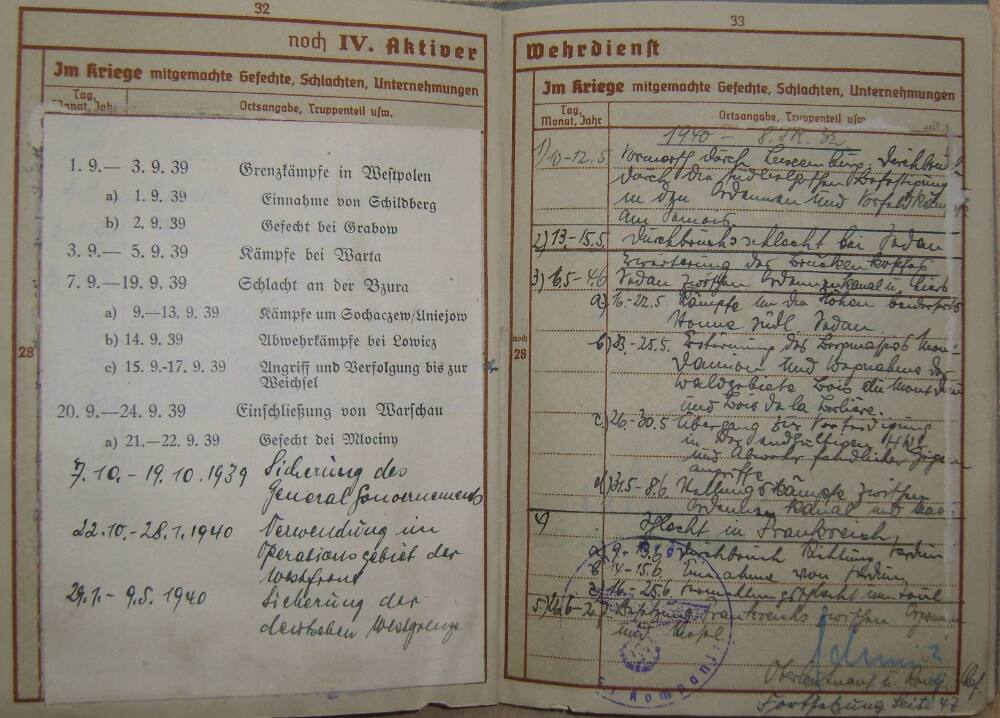 32
noch IV. Aktiver
Im Kriege mitgemachte Gefechte, Schlachten, Unternehmungen
Tag,
Monat, Jahr
Ortsangabe, Truppenteil usw.
1. 9.— 3. 9. 39 Grenzkämpfe in Westpolen
a) 1. 9. 39 Einnahme von Schildberg
b) 2. 9. 39 Gefecht bei Grabow
3. 9.— 5. 9. 39 Kämpfe bei Warta
7. 9.—19. 9. 39 Schlacht an der Bzura
a) 9.—13. 9. 39 Kämpfe um Sochaczew/Uniejow
b) 14. 9. 39 Abwehrkämpfe bei Lowicz
c) 15. 9.-17. 9. 39 Angriff und Verfolgung bis zur
Weichsel
20. 9.—24. 9. 39 Einschließung von Warschau
a) 21.—22. 9. 39 Gefecht bei Mlociny
7.10.-19.10.1939 Sicherung des
General Gouvernements
22.10.-28.1.1940 Verwendung im
Operationsgebiet der
Westfront
29.1.-9.5.1940 Sicherung der
deutschen Westgrenze
28
33
Wehrdienst
Im Kriege mitgemachte Gefechte, Schlachten, Unternehmungen
Tag,
Monat, Jahr
Ortsangabe, Truppenteil usw
1940 -
1) 10-12.5. Vormarsch durch Luxemburg, Durchbruch
durch die Befestigung
in den Ardennen und
am Semois
2) 13.-15.5. Durchbruchsschlacht bei Sedan
Erweiterung des Brückenkopfes
3) 16.5-4.6 Sedan zwischen Ardennenkanal u. Maas
a) 16.-22.5 Kämpfe um die Höhen beiderseits
Stonne südl. Sedan
noch
28
b) 23.-25.5. Erstürmung des Bergmassivs Mont
Damion und Wegnahme der
Waldgebiete Bois du Mont
und Bois de la
c) 26.-30.5 Übergang zur Verteidigung
in der endgültigen
und Abwehr feindlicher Gegen
angriffe
d) 31.5-8.6. Stellungskämpfe zwischen
Ardennen Kanal und Maas
4) Schlacht in Frankreich
a) 9.-13.6 Durchbruch Richtung Verdun
b) 14-15.6 Einnahme von Verdun
c) 16.-25.6 um Toul
5) Besetzung Frankreichs zwischen
und Mosel
Kompanie
Oberleutnant u. Komp.-Chef.
Fortsetzung Seite 43